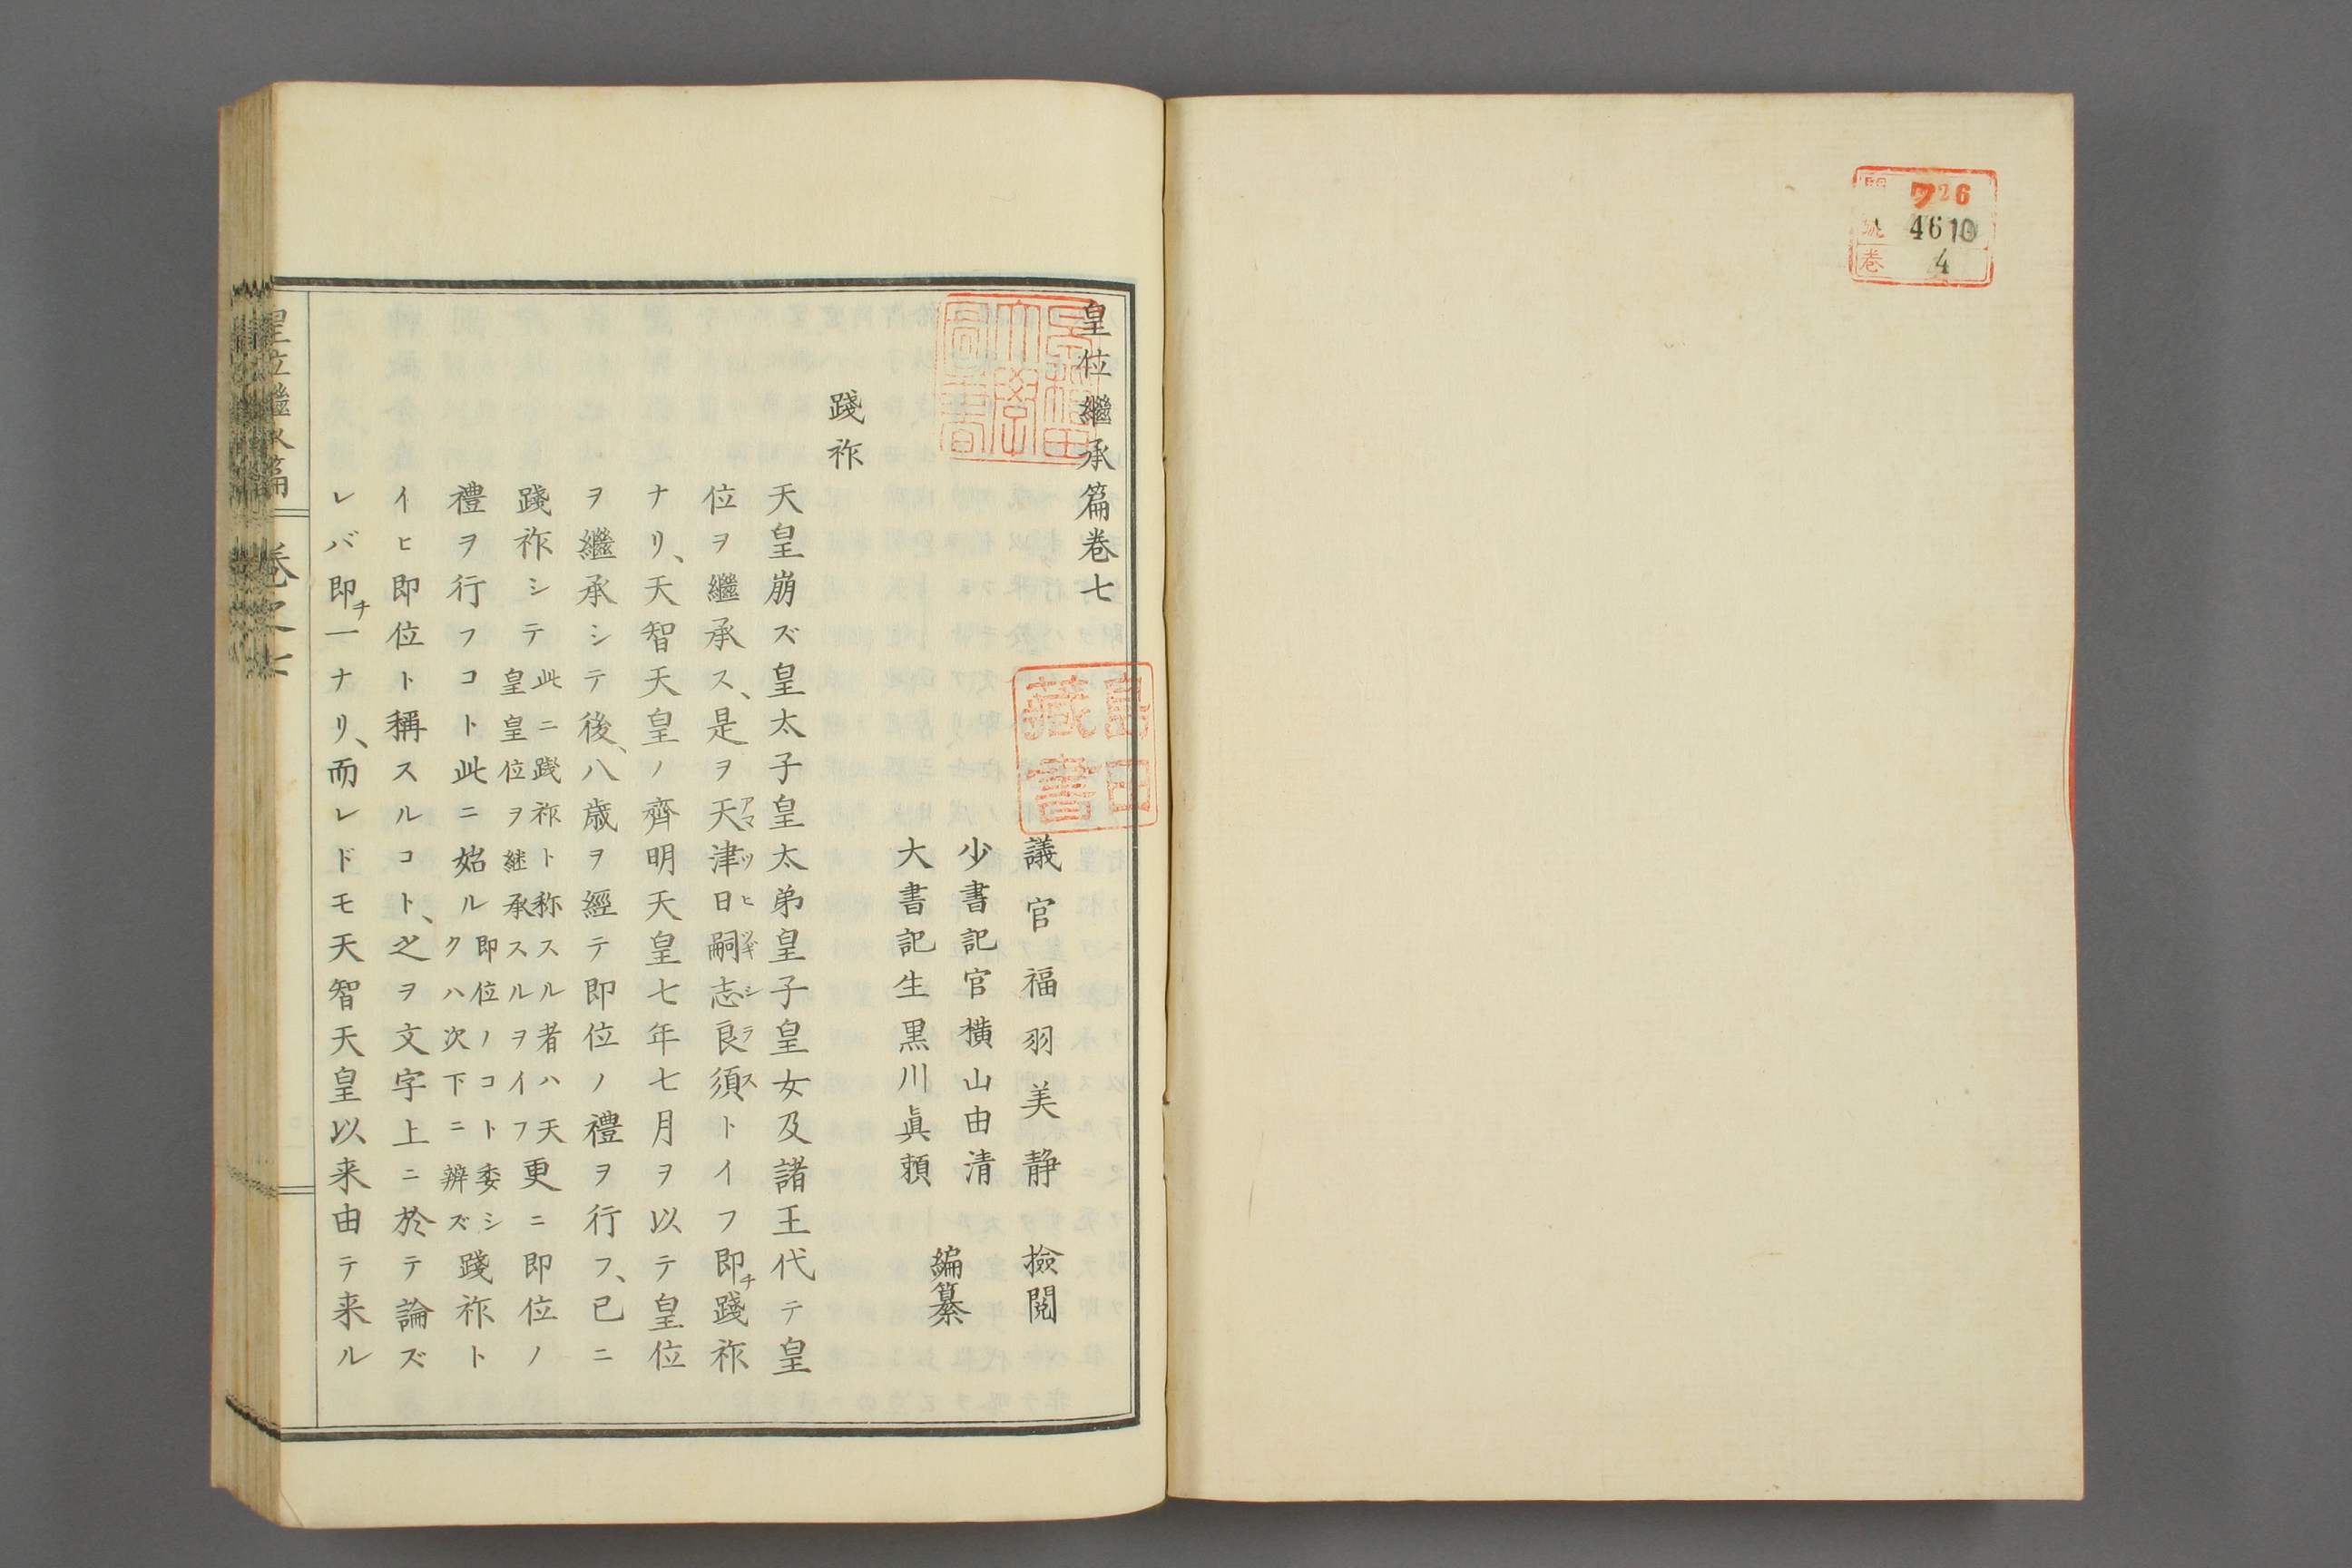 726
4610
卷 4
皇位繼承篇卷七
早稲田大學圖書
島田藏書
議官 福羽美静 撿閲
少書記官橫山由清
大書記生黒川眞頼
編纂
踐祚
天皇崩ズ皇太子皇太弟皇子皇女及諸王代テ皇
位ヲ繼承ス、是ヲ天津日嗣志良須トイフ即チ踐祚
アマツヒツギシラス
ナリ、天智天皇ノ齊明天皇七年七月ヲ以テ皇位
ヲ繼承シテ後、八歳ヲ經テ即位ノ禮ヲ行フ、已ニ
踐祚シテ
此ニ踐祚ト称スル者ハ天
皇皇位ヲ継承スルヲイフ
更ニ即位ノ
禮ヲ行フコト此ニ始ル
即位ノコト委シ
クハ次下ニ辨ズ
踐祚ト
イヒ即位ト稱スルコト、之ヲ文字上ニ於テ論ズ
レバ即チ一ナリ、而レドモ天智天皇以来由テ来ル
皇位繼承篇 卷之七